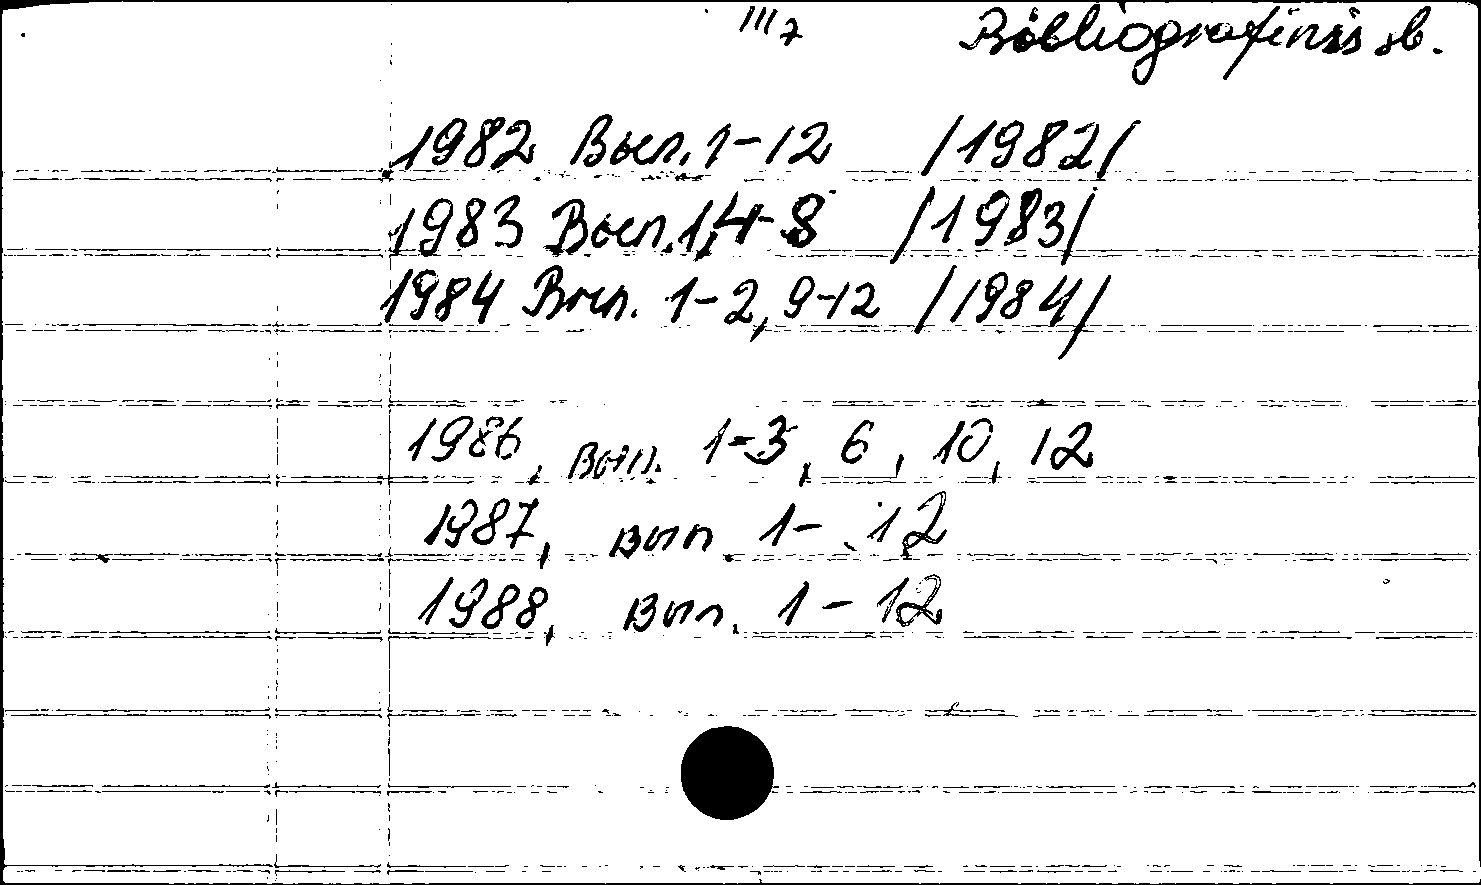 III 7 Bibliografinis sk.
1982 Вып. 1-12 /1982/
1983 Вып. 1,4-8 /1983/
1984 Вып. 1-2, 9-12 /1984/
1986, вып. 1-3, 6, 10, 12
1987, вып. 1-12
1988, вып. 1-12